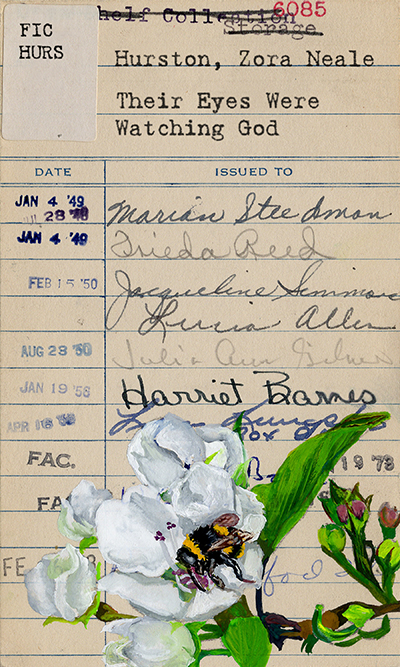 6085
Shelf Collection
Storage
FIC
HURS
Hurston, Zora Neale
Their Eyes Were
Watching God
DATE ISSUED TO
JAN 4 '49
JUL 28 '48 Marian Steedman
JAN 4 '49 Frieda Reed
FEB 15 '50 Jacqueline Simmons
Allen
AUG 23 '50 Julia Ann
JAN 19 '56 Harriet Barnes
APR 16
FAC. 19 79
FA
FE 8